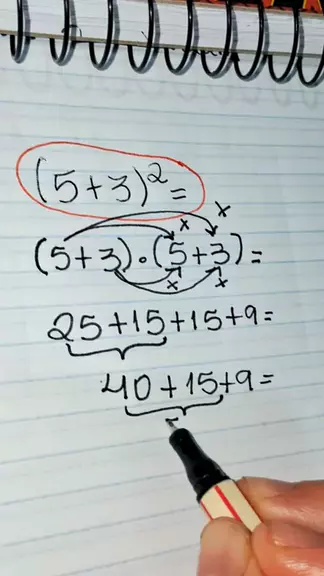 (5+3)²=
(5+3)·(5+3)=
x x
x x
25+15+15+9=
40+15+9=